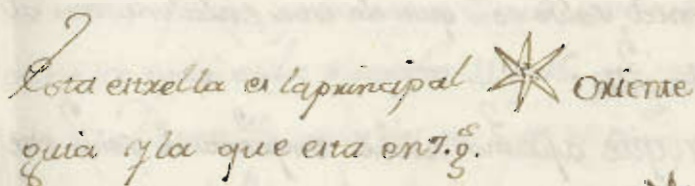 Esta estrella es la principal Oriente
guia y la que esta en